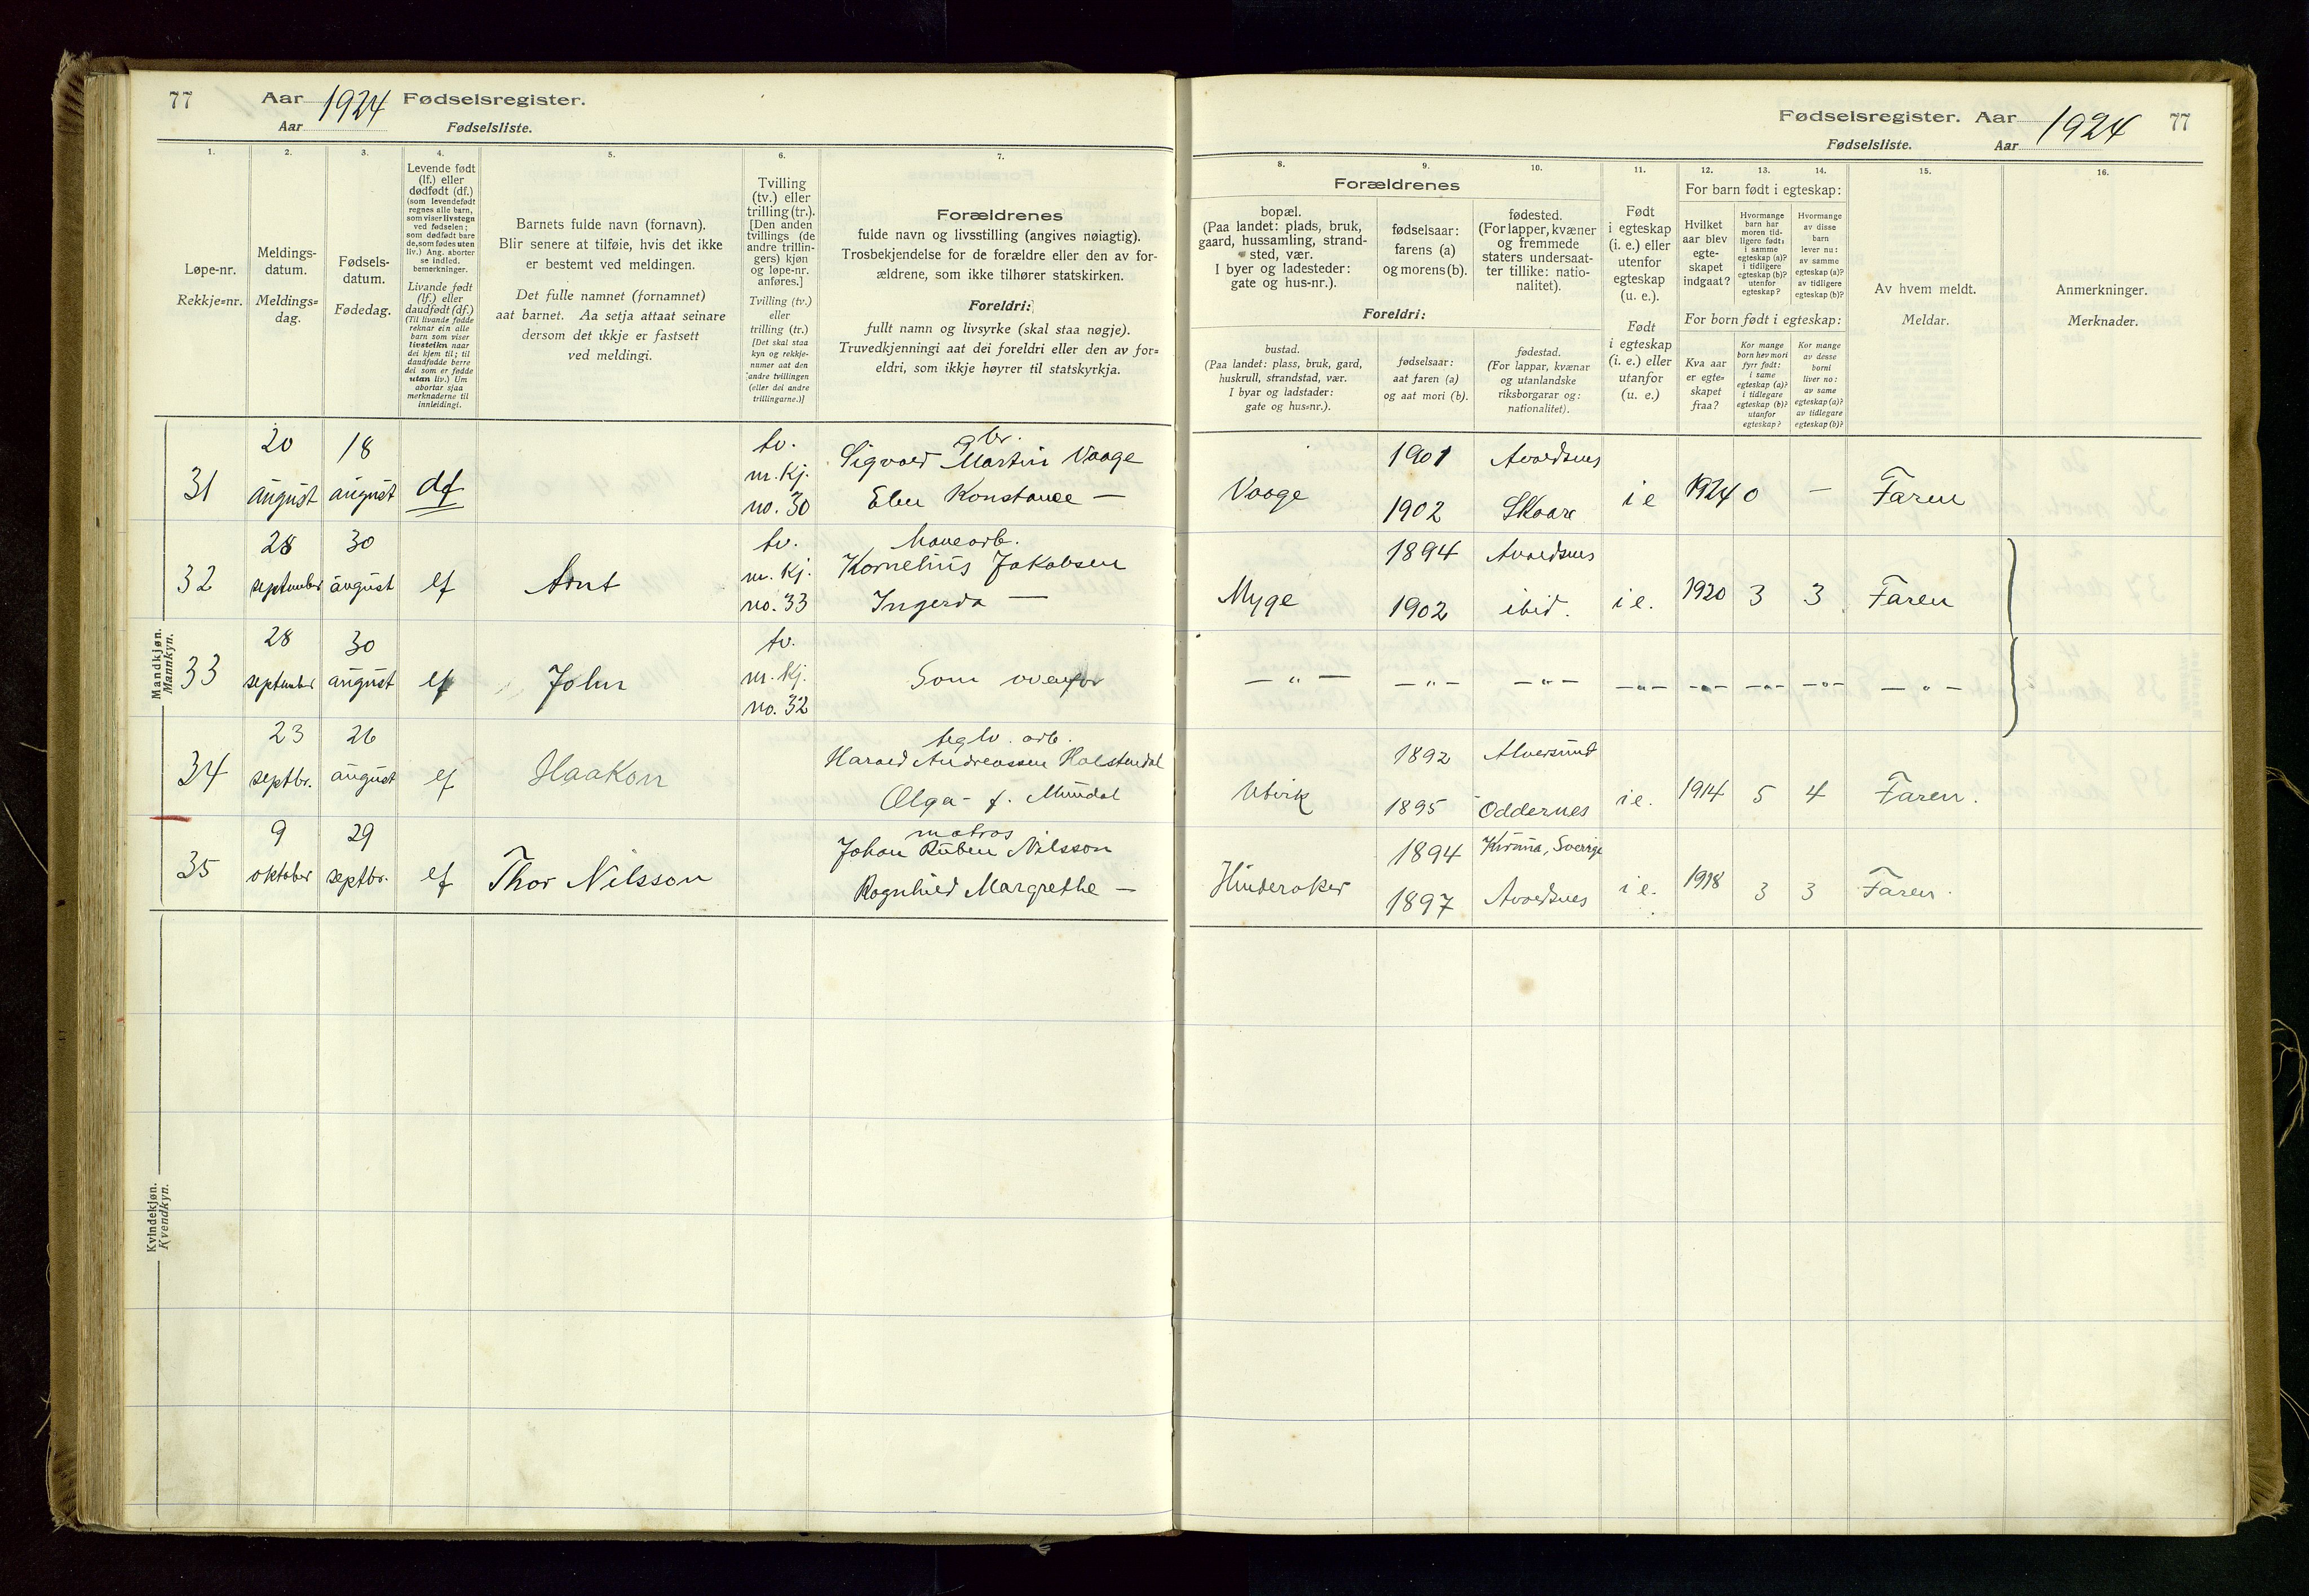 77 Aar 1924 Fødselsregister.
Aar Fødselsliste.
1. 2. 3. 4. 5. 6. 7.
Løpe-nr.
Rekkje=nr.
Meldings-
datum.
Meldings=
dag.
Fødsels-
datum.
Fødedag.
Levende født
(lf.) eller
dødfødt (df.)
(som levendefødt
regnes alle barn,
som viser livstegn
ved fødselen;
som dødfødt bare
de, som fødes uten
liv.) Ang. aborter
se indled.
bemerkninger.
Livande født
(lf.) eller
daudfødt (df.)
(Til livande fødde
reknar ein alle
barn som viser
livsteikn naar
dei kjem til; til
daudfødde berre
dei som er fødde
utan liv.) Um
abortar sjaa
merknaderne til
innleidingi.
Barnets fulde navn (fornavn).
Blir senere at tilføie, hvis det ikke
er bestemt ved meldingen.
Det fulle namnet (fornamnet)
aat barnet. Aa setja attaat seinare
dersom det ikkje er fastsett
ved meldingi.
Tvilling
(tv.) eller
trilling (tr.).
[Den anden
tvillings (de
andre trillin-
gers) kjøn
og løpe-nr.
anføres.]
Tvilling (tv.)
eller
trilling (tr.)
[Det skal staa
kyn og rekkje-
numer aat den
andre tvillingen
(eller dei andre
trillingarne.)]
Forældrenes
fulde navn og livsstilling (angives nøiagtig).
Trosbekjendelse for de forældre eller den av for-
ældrene, som ikke tilhører statskirken.
Foreldri:
fullt namn og livsyrke (skal staa nøgje).
Truvedkjenningi aat dei foreldri eller den av for=
eldri, som ikkje høyrer til statskyrkja.
Mandkjøn.
Mannkyn.
31 20 august 18 august df tv. m. kj. no. 30 gbr. Sigvald Martin Vaage
Elen Konstanse —
32 28 september 30 august lf Arnt tv. m. kj. no. 33
Kornelius Jakobsen
Ingerda —
33 28 september 30 august lf John tv. m. kj. no. 32 Som ovenfor
34 23 septbr. 26 august lf Haakon teglv. arb.
Harald Andreassen Holstendal
Olga — f. Mundal
35 9 oktober 29 septbr. lf Thor Nilsson matros
Johan Ruben Nilsson
Ragnhild Margrethe —
Kvindekjøn.
Kvendkyn.
Fødselsregister. Aar 1924 77
Fødselsliste. Aar
8. 9. 10. 11. 12. 13. 14. 15. 16.
Forældrenes
bopæl.
(Paa landet: plads, bruk,
gaard, hussamling, strand-
sted, vær.
I byer og ladesteder:
gate og hus-nr.).
fødselsaar:
farens (a)
og morens (b).
fødested.
(For lapper, kvæner
og fremmede
staters undersaat-
ter tillike: natio-
nalitet).
Foreldri:
bustad.
(Paa landet: plass, bruk, gard,
huskrull, strandstad, vær.
I byar og ladstader:
gate og hus=nr.).
fødselsaar:
aat faren (a)
og aat mori (b).
fødestad.
(For lappar, kvænar
og utanlandske
riksborgarar og:
nationalitet).
Født
i egteskap
(i. e.) eller
utenfor
egteskap
(u. e.).
Født
i egteskap
(i. e.) eller
utanfor
(u. e.)
For barn født i egteskap:
Hvilket
aar blev
egte-
skapet
indgaat?
Hvormange
barn har
moren tid-
ligere født:
i samme
egteskap (a)?
i tidligere
egteskap (b)?
utenfor
egteskap?
Hvormange
av disse
barn
lever nu:
av samme
egteskap (a)?
av tidligere
egteskap (b)?
For born født i egteskap:
Kva aar
er egte=
skapet
fraa?
Kor mange
born hev mori
fyrr født:
i same
egteskap (a)?
i tidlegare
egteskap (b)?
utanfor
egteskap?
Kor mange
av desse
borni
liver no:
av same
egteskap (a)?
av tidlegare
egteskap (b)?
Av hvem meldt.
Meldar.
Anmerkninger.
Merknader.
Vaage 1901 Avaldsnes
1902 Skaare i e 1924 0 — Faren
Myge 1894 Avaldsnes
1902 ibid. i e. 1920 3 3 Faren
— " — — " — — " — — " — — " — — " — — " — — " —
Utvik 1892 Alversund
1895 Oddernes i e. 1914 5 4 Faren.
Hinderaker 1894 Kiruna, Sverige
1897 Avaldsnes i e. 1918 3 3 Faren.